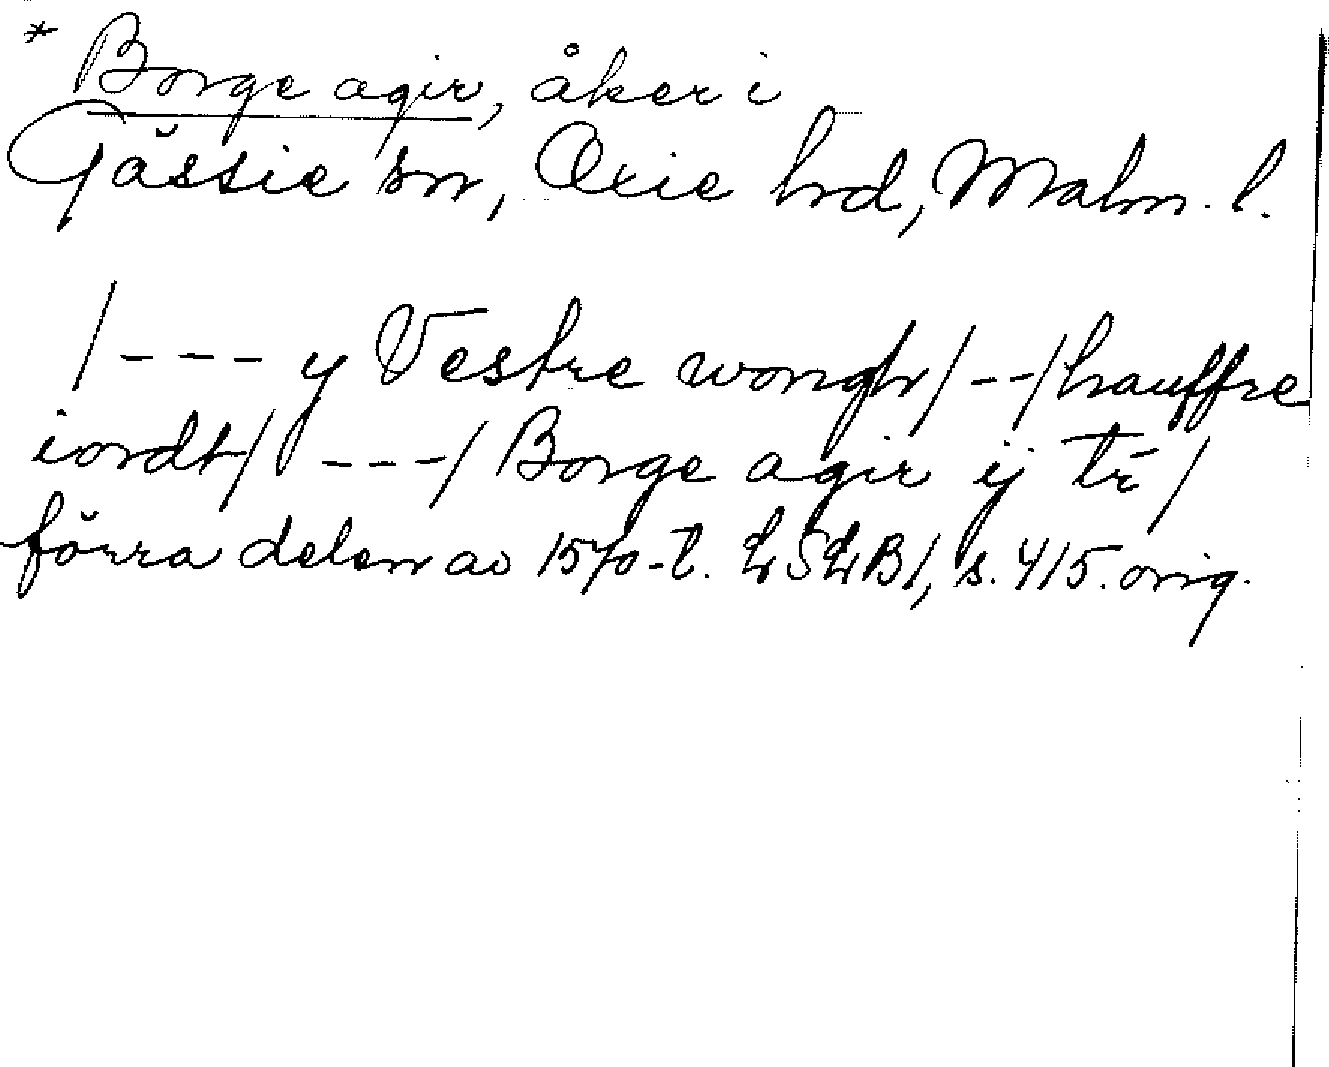 * Borge agir, åker i
Gässie sn, Oxie hrd, Malm. l.
/--- y Vestre wongh/--/hauffre
iordt/ ---/ Borge agir ij tr̄ /
förra delen av 1570-t. LSLB1, s. 415. orig.